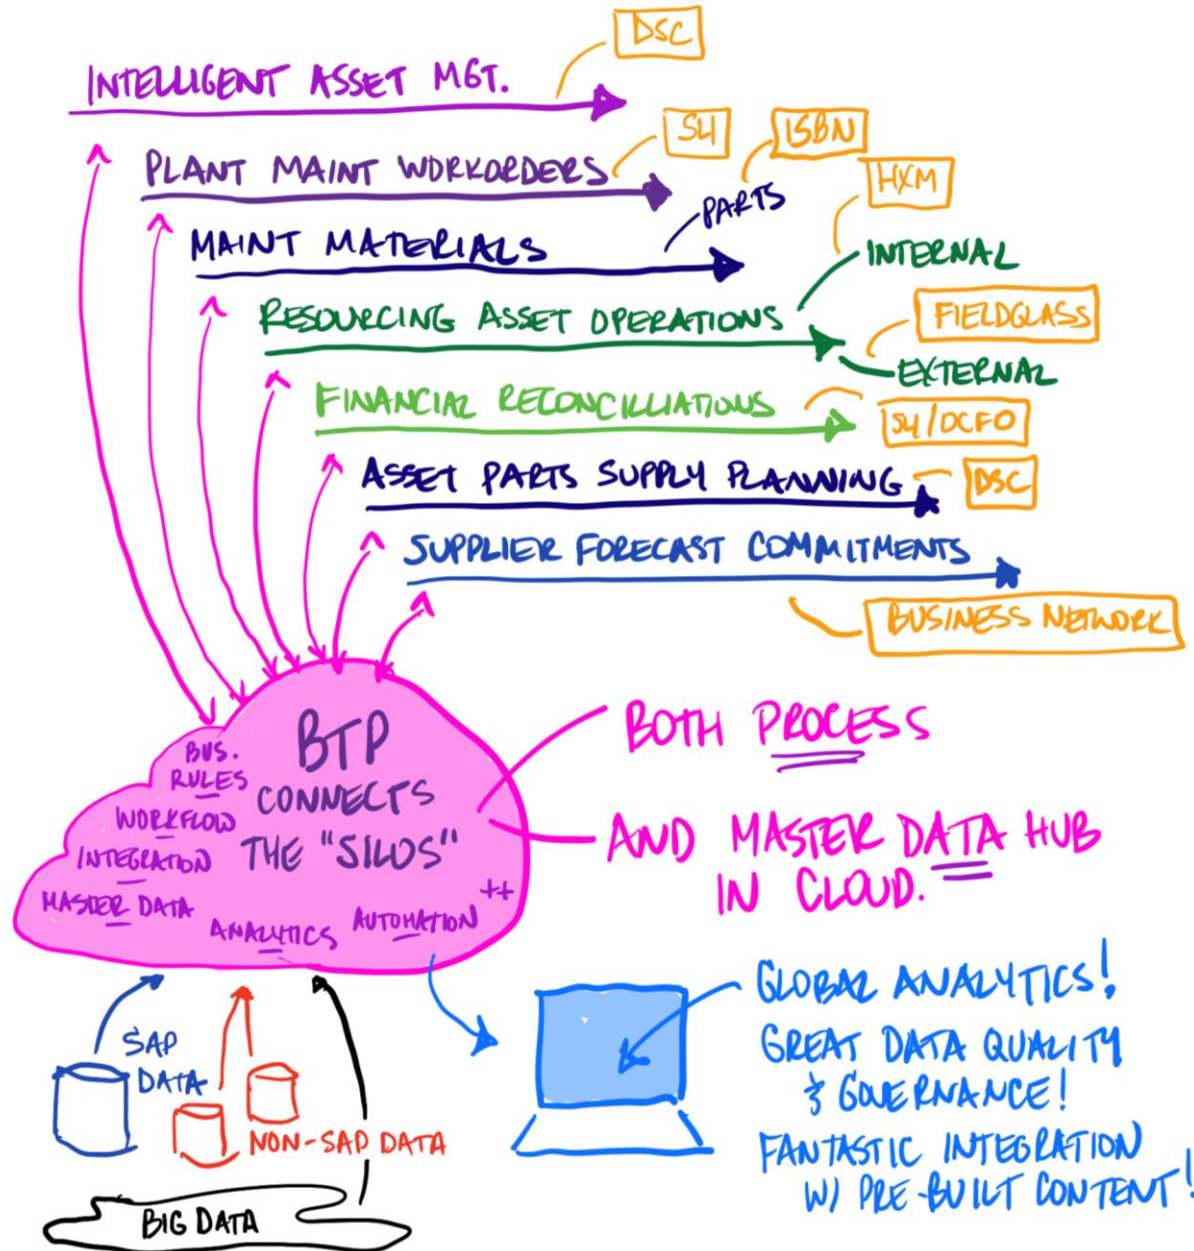 DSC
INTELLIGENT ASSET MGT.
S4
ISBN
PLANT MAINT WORKORDERS
HXM
PARTS
MAINT MATERIALS
INTERNAL
RESOURCING ASSET OPERATIONS
FIELDGLASS
EXTERNAL
FINANCIAL RECONCILLIATIONS
S4/OCFO
ASSET PARTS SUPPLY PLANNING
DSC
SUPPLIER FORECAST COMMITMENTS
BUSINESS NETWORK
BTP
CONNECTS
THE "SILOS"
BUS.
RULES
WORKFLOW
INTEGRATION
MASTER DATA
ANALYTICS
AUTOMATION
++
BOTH PROCESS
AND MASTER DATA HUB
IN CLOUD.
SAP
DATA
NON-SAP DATA
BIG DATA
GLOBAL ANALYTICS!
GREAT DATA QUALITY
& GOVERNANCE!
FANTASTIC INTEGRATION
W/ PRE-BUILT CONTENT!